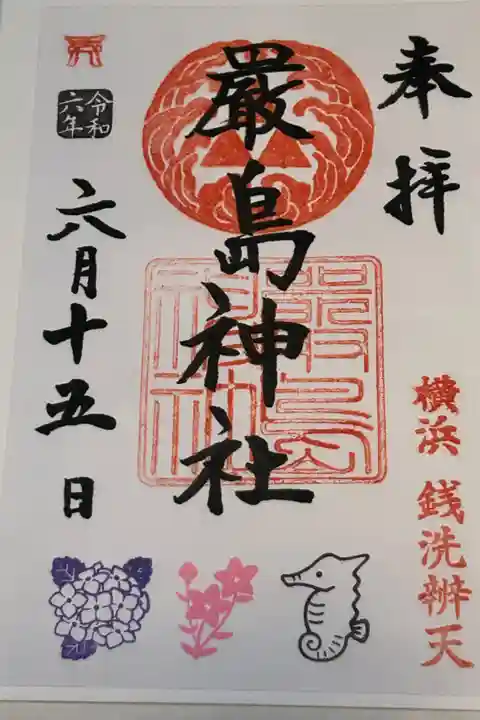 奉拝
厳島神社
横浜 銭洗辨天
厳島
神社
令和
六年
六月十五日